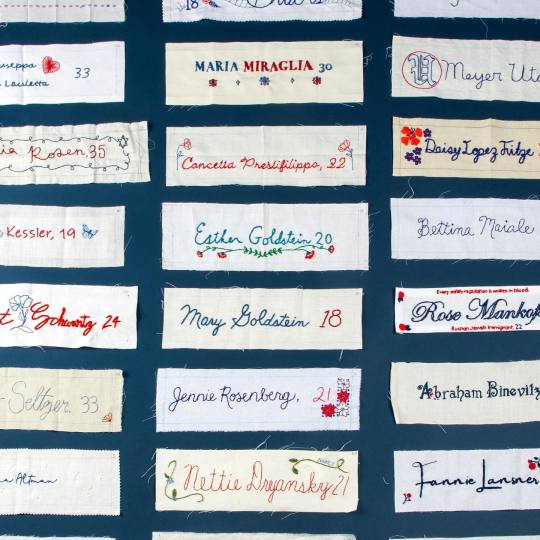 18
MARIA MIRAGLIA 30
33
Lauletta
Meyer
Rosen, 35
Concetta Prestifilippo, 22
Daisy Lopez Fitze
Kessler, 19
Esther Goldstein 20
Bettina Maiale
Schwartz 24
Mary Goldstein 18
Every safety regulation is written in blood.
Rose
Russian Jewish Immigrant, 22
Seltzer, 33
Jennie Rosenberg, 21
Abraham Binevitz
Altman
Nettie Dryansky 21
Fannie Lansner